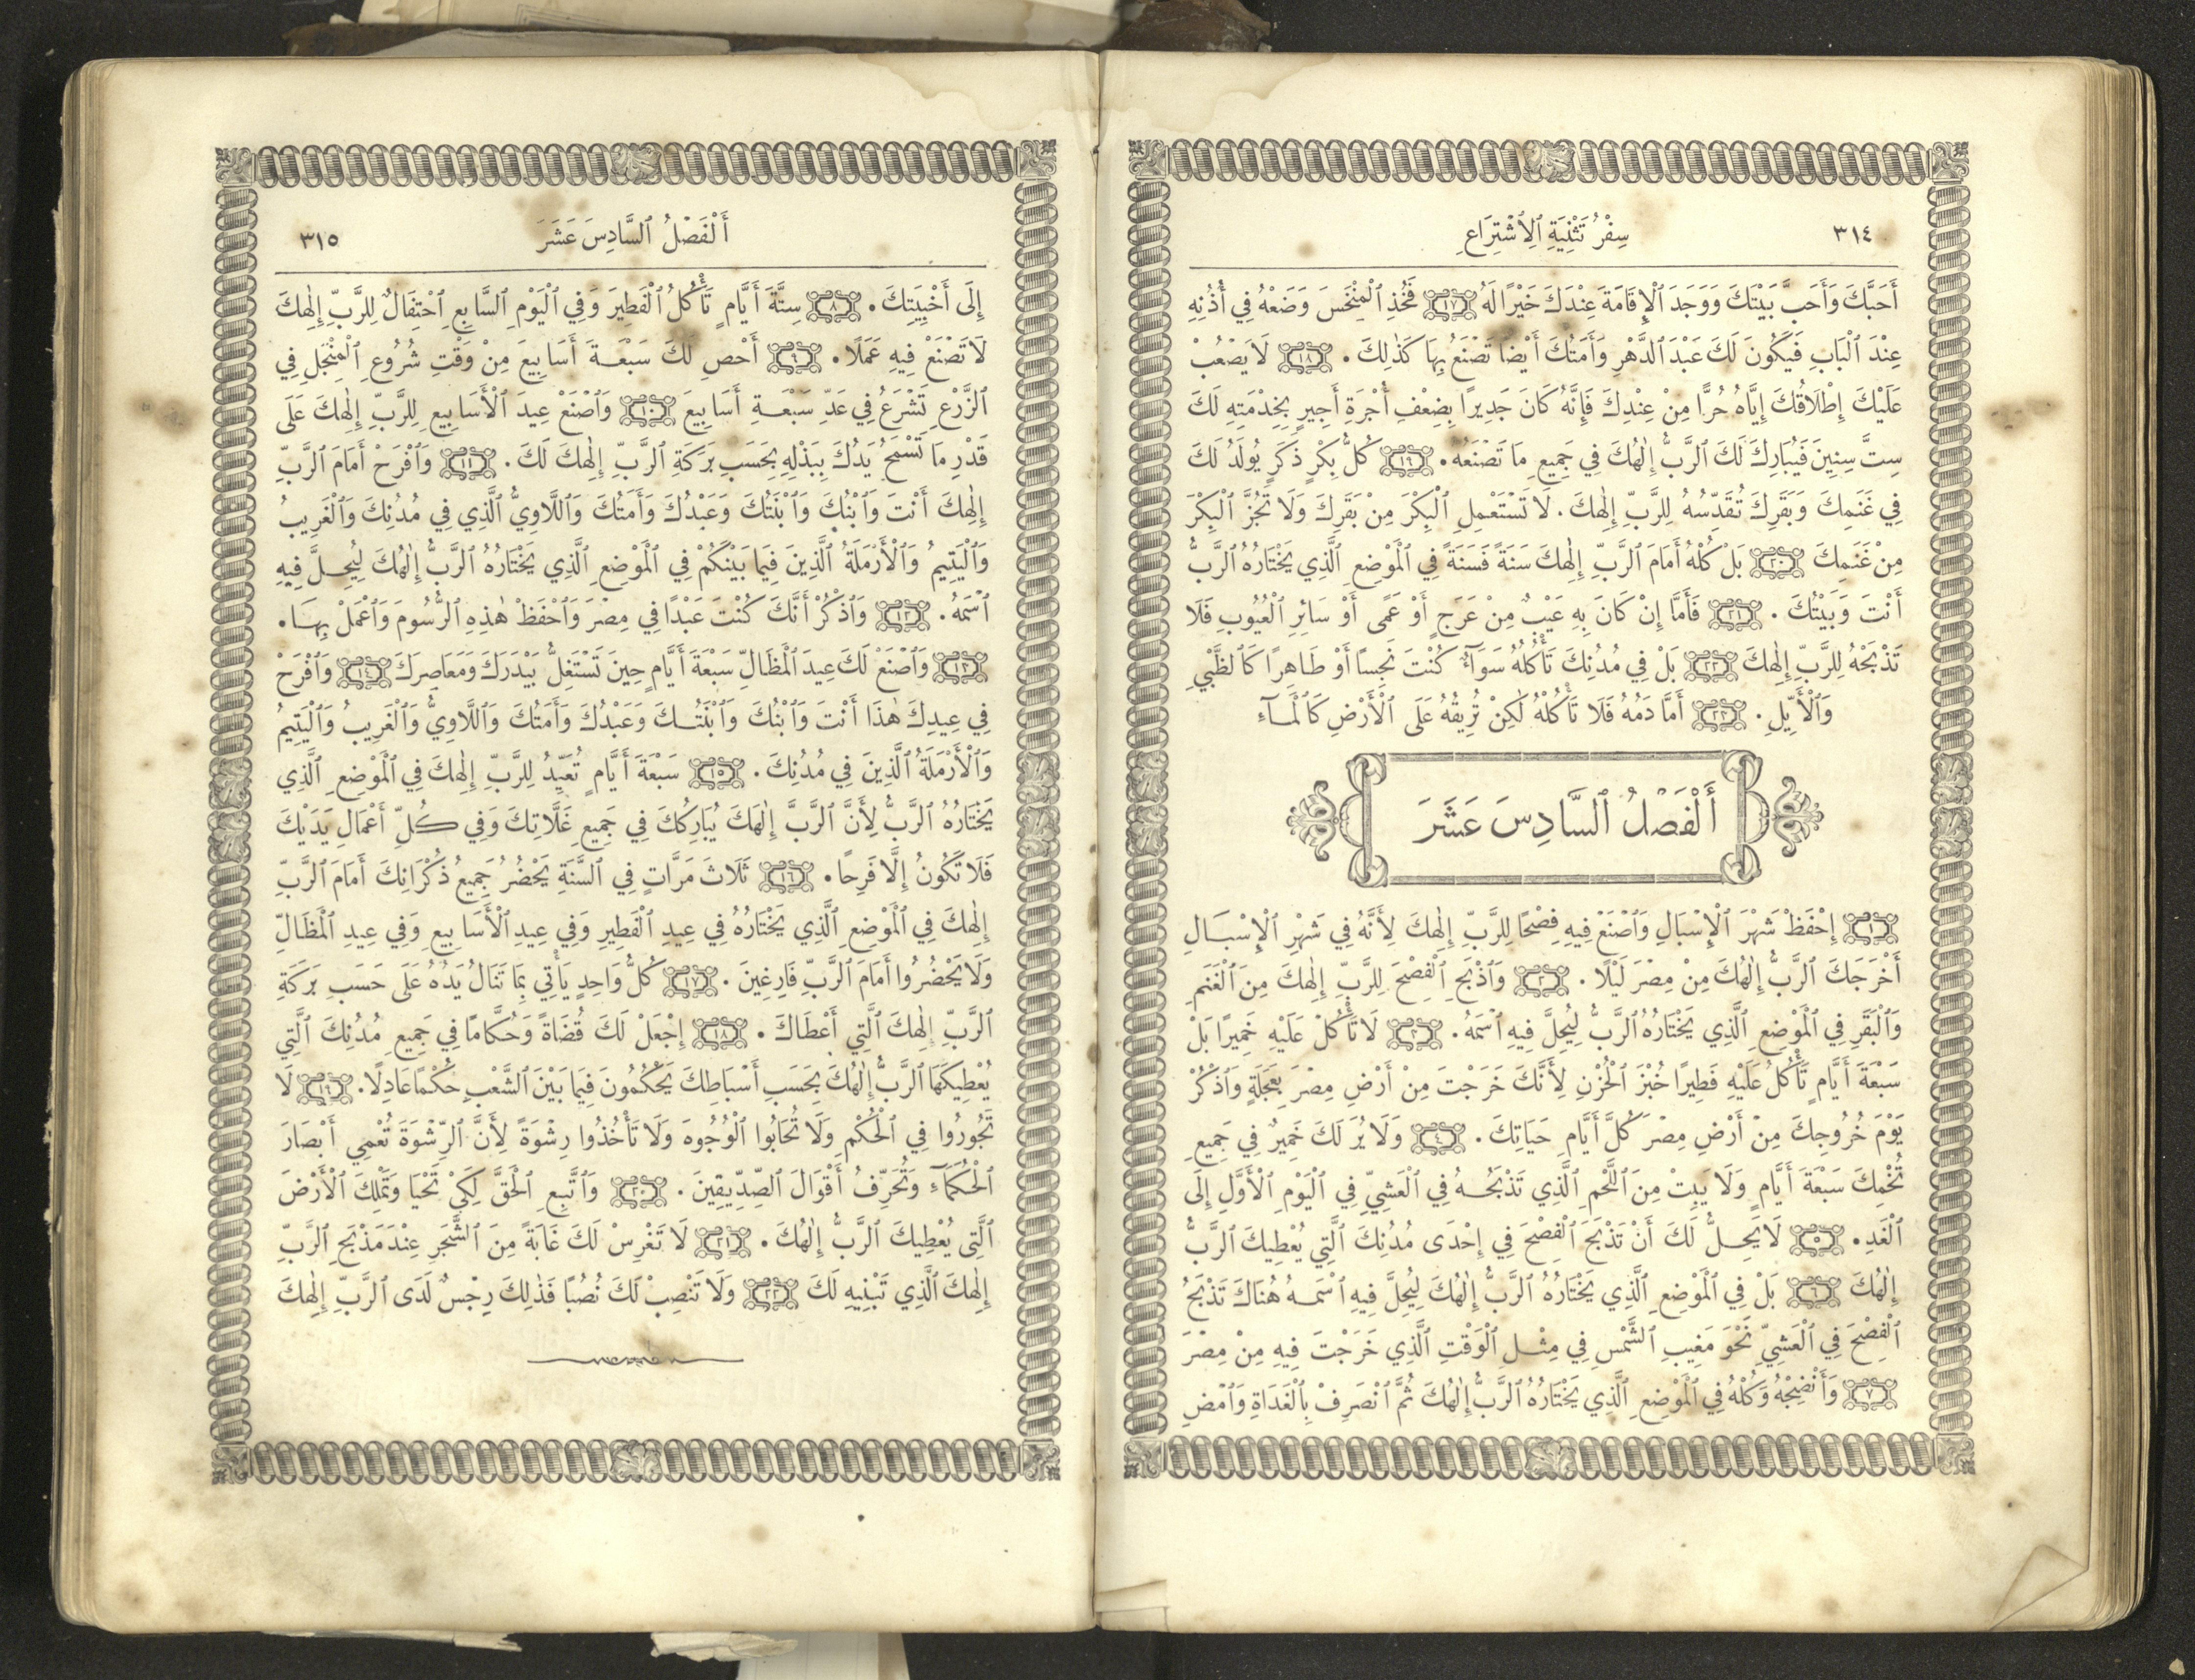 ٣١٤
سِفْرُ تَثْنِيَةِ ٱلِٱشْتِرَاعِ
أَحَبَّكَ وَأَحَبَّ بَيْتَكَ وَوَجَدَ ٱلْإِقَامَةَ عِنْدَكَ خَيْرًا لَهُ ١٧ فَخُذِ ٱلْمِنْخَسَ وَضَعْهُ فِي أُذُنِهِ
عِنْدَ ٱلْبَابِ فَيَكُونَ لَكَ عَبْدَ ٱلدَّهْرِ وَأَمَتُكَ أَيْضًا تَصْنَعُ بِهَا كَذٰلِكَ. ١٨ لَا يَصْعُبْ
عَلَيْكَ إِطْلَاقُكَ إِيَّاهُ حُرًّا مِنْ عِنْدِكَ فَإِنَّهُ كَانَ جَدِيرًا بِضِعْفِ أُجْرَةِ أَجِيرٍ بِخِدْمَتِهِ لَكَ
سِتَّ سِنِينَ فَيُبَارِكُ لَكَ ٱلرَّبُّ إِلٰهُكَ فِي جَمِيعِ مَا تَصْنَعُهُ. ١٩ كُلُّ بِكْرٍ ذَكَرٍ يُولَدُ لَكَ
فِي غَنَمِكَ وَبَقَرِكَ تُقَدِّسُهُ لِلرَّبِّ إِلٰهِكَ. لَا تَسْتَعْمِلِ ٱلْبِكْرَ مِنْ بَقَرِكَ وَلَا تَجُزَّ ٱلْبِكْرَ
مِنْ غَنَمِكَ ٢٠ بَلْ كُلْهُ أَمَامَ ٱلرَّبِّ إِلٰهِكَ سَنَةً فَسَنَةً فِي ٱلْمَوْضِعِ ٱلَّذِي يَخْتَارُهُ ٱلرَّبُّ
أَنْتَ وَبَيْتُكَ. ٢١ فَأَمَّا إِنْ كَانَ بِهِ عَيْبٌ مِنْ عَرَجٍ أَوْ عَمًى أَوْ سَائِرِ ٱلْعُيُوبِ فَلَا
تَذْبَحْهُ لِلرَّبِّ إِلٰهِكَ ٢٢ بَلْ فِي مُدُنِكَ تَأْكُلُهُ سَوَآءٌ كُنْتَ نَجِسًا أَوْ طَاهِرًا كَٱلظَّبْيِ
وَٱلْأَيِّلِ. ٢٣ أَمَّا دَمُهُ فَلَا تَأْكُلْهُ لٰكِنْ تُرِيقُهُ عَلَى ٱلْأَرْضِ كَٱلْمَآءِ
أَلْفَصْلُ ٱلسَّادِسَ عَشَرَ
١ إِحْفَظْ شَهْرَ ٱلْإِسْبَالِ وَٱصْنَعْ فِيهِ فِصْحًا لِلرَّبِّ إِلٰهِكَ لِأَنَّهُ فِي شَهْرِ ٱلْإِسْبَالِ
أَخْرَجَكَ ٱلرَّبُّ إِلٰهُكَ مِنْ مِصْرَ لَيْلًا. ٢ وَٱذْبَحِ ٱلْفِصْحَ لِلرَّبِّ إِلٰهِكَ مِنَ ٱلْغَنَمِ
وَٱلْبَقَرِ فِي ٱلْمَوْضِعِ ٱلَّذِي يَخْتَارُهُ ٱلرَّبُّ لِيُحِلَّ فِيهِ ٱسْمَهُ. ٣ لَا تَأْكُلْ عَلَيْهِ خَمِيرًا بَلْ
سَبْعَةَ أَيَّامٍ تَأْكُلُ عَلَيْهِ فَطِيرًا خُبْزَ ٱلْحُزْنِ لِأَنَّكَ خَرَجْتَ مِنْ أَرْضِ مِصْرَ بِعَجَلَةٍ وَٱذْكُرْ
يَوْمَ خُرُوجِكَ مِنْ أَرْضِ مِصْرَ كُلَّ أَيَّامِ حَيَاتِكَ. ٤ وَلَا يُرَ لَكَ خَمِيرٌ فِي جَمِيعِ
تُخْمِكَ سَبْعَةَ أَيَّامٍ وَلَا يَبِتْ مِنَ ٱللَّحْمِ ٱلَّذِي تَذْبَحُهُ فِي ٱلْعَشِيِّ فِي ٱلْيَوْمِ ٱلْأَوَّلِ إِلَى
ٱلْغَدِ. ٥ لَا يَحِلُّ لَكَ أَنْ تَذْبَحَ ٱلْفِصْحَ فِي إِحْدَى مُدُنِكَ ٱلَّتِي يُعْطِيكَ ٱلرَّبُّ
إِلٰهُكَ ٦ بَلْ فِي ٱلْمَوْضِعِ ٱلَّذِي يَخْتَارُهُ ٱلرَّبُّ إِلٰهُكَ لِيُحِلَّ فِيهِ ٱسْمَهُ هُنَاكَ تَذْبَحُ
ٱلْفِصْحَ فِي ٱلْعَشِيِّ نَحْوَ مَغِيبِ ٱلشَّمْسِ فِي مِثْلِ ٱلْوَقْتِ ٱلَّذِي خَرَجْتَ فِيهِ مِنْ مِصْرَ
٧ وَأَنْضِجْهُ وَكُلْهُ فِي ٱلْمَوْضِعِ ٱلَّذِي يَخْتَارُهُ ٱلرَّبُّ إِلٰهُكَ ثُمَّ ٱنْصَرِفْ بِٱلْغَدَاةِ وَٱمْضِ
أَلْفَصْلُ ٱلسَّادِسَ عَشَرَ
٣١٥
إِلَى أَخْبِيَتِكَ. ٨ سِتَّةَ أَيَّامٍ تَأْكُلُ ٱلْفَطِيرَ وَفِي ٱلْيَوْمِ ٱلسَّابِعِ ٱحْتِفَالٌ لِلرَّبِّ إِلٰهِكَ
لَا تَصْنَعْ فِيهِ عَمَلًا. ٩ أَحْصِ لَكَ سَبْعَةَ أَسَابِيعَ مِنْ وَقْتِ شُرُوعِ ٱلْمِنْجَلِ فِي
ٱلزَّرْعِ تَشْرَعُ فِي عَدِّ سَبْعَةِ أَسَابِيعَ ١٠ وَٱصْنَعْ عِيدَ ٱلْأَسَابِيعِ لِلرَّبِّ إِلٰهِكَ عَلَى
قَدْرِ مَا تَسْمَحُ يَدُكَ بِبَذْلِهِ بِحَسَبِ بَرَكَةِ ٱلرَّبِّ إِلٰهِكَ لَكَ. ١١ وَٱفْرَحْ أَمَامَ ٱلرَّبِّ
إِلٰهِكَ أَنْتَ وَٱبْنُكَ وَٱبْنَتُكَ وَعَبْدُكَ وَأَمَتُكَ وَٱللَّاوِيُّ ٱلَّذِي فِي مُدُنِكَ وَٱلْغَرِيبُ
وَٱلْيَتِيمُ وَٱلْأَرْمَلَةُ ٱلَّذِينَ فِيمَا بَيْنَكُمْ فِي ٱلْمَوْضِعِ ٱلَّذِي يَخْتَارُهُ ٱلرَّبُّ إِلٰهُكَ لِيُحِلَّ فِيهِ
ٱسْمَهُ. ١٢ وَٱذْكُرْ أَنَّكَ كُنْتَ عَبْدًا فِي مِصْرَ وَٱحْفَظْ هٰذِهِ ٱلرُّسُومَ وَٱعْمَلْ بِهَا.
١٣ وَٱصْنَعْ لَكَ عِيدَ ٱلْمَظَالِّ سَبْعَةَ أَيَّامٍ حِينَ تَسْتَغِلُّ بَيْدَرَكَ وَمَعَاصِرَكَ ١٤ وَٱفْرَحْ
فِي عِيدِكَ هٰذَا أَنْتَ وَٱبْنُكَ وَٱبْنَتُكَ وَعَبْدُكَ وَأَمَتُكَ وَٱللَّاوِيُّ وَٱلْغَرِيبُ وَٱلْيَتِيمُ
وَٱلْأَرْمَلَةُ ٱلَّذِينَ فِي مُدُنِكَ. ١٥ سَبْعَةَ أَيَّامٍ تُعَيِّدُ لِلرَّبِّ إِلٰهِكَ فِي ٱلْمَوْضِعِ ٱلَّذِي
يَخْتَارُهُ ٱلرَّبُّ لِأَنَّ ٱلرَّبَّ إِلٰهَكَ يُبَارِكُكَ فِي جَمِيعِ غَلَّاتِكَ وَفِي كُلِّ أَعْمَالِ يَدَيْكَ
فَلَا تَكُونُ إِلَّا فَرِحًا. ١٦ ثَلَاثَ مَرَّاتٍ فِي ٱلسَّنَةِ يَحْضُرُ جَمِيعُ ذُكْرَانِكَ أَمَامَ ٱلرَّبِّ
إِلٰهِكَ فِي ٱلْمَوْضِعِ ٱلَّذِي يَخْتَارُهُ فِي عِيدِ ٱلْفَطِيرِ وَفِي عِيدِ ٱلْأَسَابِيعِ وَفِي عِيدِ ٱلْمَظَالِّ
وَلَا يَحْضُرُوا أَمَامَ ٱلرَّبِّ فَارِغِينَ. ١٧ كُلُّ وَاحِدٍ يَأْتِي بِمَا تَنَالُ يَدُهُ عَلَى حَسَبِ بَرَكَةِ
ٱلرَّبِّ إِلٰهِكَ ٱلَّتِي أَعْطَاكَ. ١٨ إِجْعَلْ لَكَ قُضَاةً وَحُكَّامًا فِي جَمِيعِ مُدُنِكَ ٱلَّتِي
يُعْطِيكَهَا ٱلرَّبُّ إِلٰهُكَ بِحَسَبِ أَسْبَاطِكَ يَحْكُمُونَ فِيمَا بَيْنَ ٱلشَّعْبِ حُكْمًا عَادِلًا. ١٩ لَا
تَجُورُوا فِي ٱلْحُكْمِ وَلَا تُحَابُوا ٱلْوُجُوهَ وَلَا تَأْخُذُوا رِشْوَةً لِأَنَّ ٱلرِّشْوَةَ تُعْمِي أَبْصَارَ
ٱلْحُكَمَآءِ وَتُحَرِّفُ أَقْوَالَ ٱلصِّدِّيقِينَ. ٢٠ وَٱتَّبِعِ ٱلْحَقَّ لِكَيْ تَحْيَا وَتَمْلِكَ ٱلْأَرْضَ
ٱلَّتِي يُعْطِيكَ ٱلرَّبُّ إِلٰهُكَ. ٢١ لَا تَغْرِسْ لَكَ غَابَةً مِنَ ٱلشَّجَرِ عِنْدَ مَذْبَحِ ٱلرَّبِّ
إِلٰهِكَ ٱلَّذِي تَبْنِيهِ لَكَ ٢٢ وَلَا تَنْصِبْ لَكَ نُصُبًا فَذٰلِكَ رِجْسٌ لَدَى ٱلرَّبِّ إِلٰهِكَ